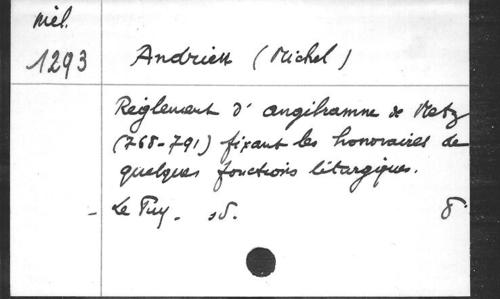 Mél.
1293 Andrieu (Michel)
Règlement d'Angilramne de Metz
(768-791) fixant les honoraires de
quelques fonctions liturgiques.
- Le Puy. sd. 8°